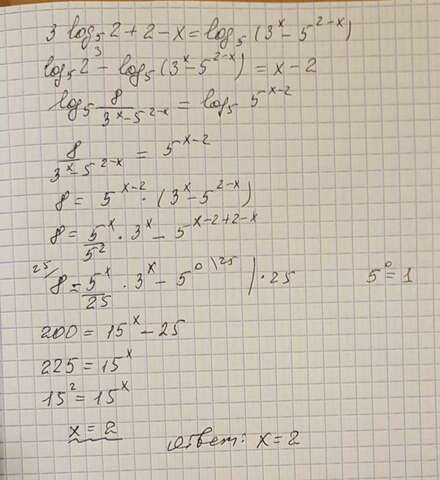 3 log₅2 + 2 - x = log₅(3ˣ - 5²⁻ˣ)
log₅2³ - log₅(3ˣ - 5²⁻ˣ) = x - 2
log₅ 8/(3ˣ - 5²⁻ˣ) = log₅ 5ˣ⁻²
8/(3ˣ - 5²⁻ˣ) = 5ˣ⁻²
8 = 5ˣ⁻² · (3ˣ - 5²⁻ˣ)
8 = 5ˣ/5² · 3ˣ - 5ˣ⁻²⁺²⁻ˣ
²⁵/8 = 5ˣ/25 · 3ˣ - 5⁰ \²⁵ | · 25 5⁰ = 1
200 = 15ˣ - 25
225 = 15ˣ
15² = 15ˣ
x = 2 ответ: x = 2